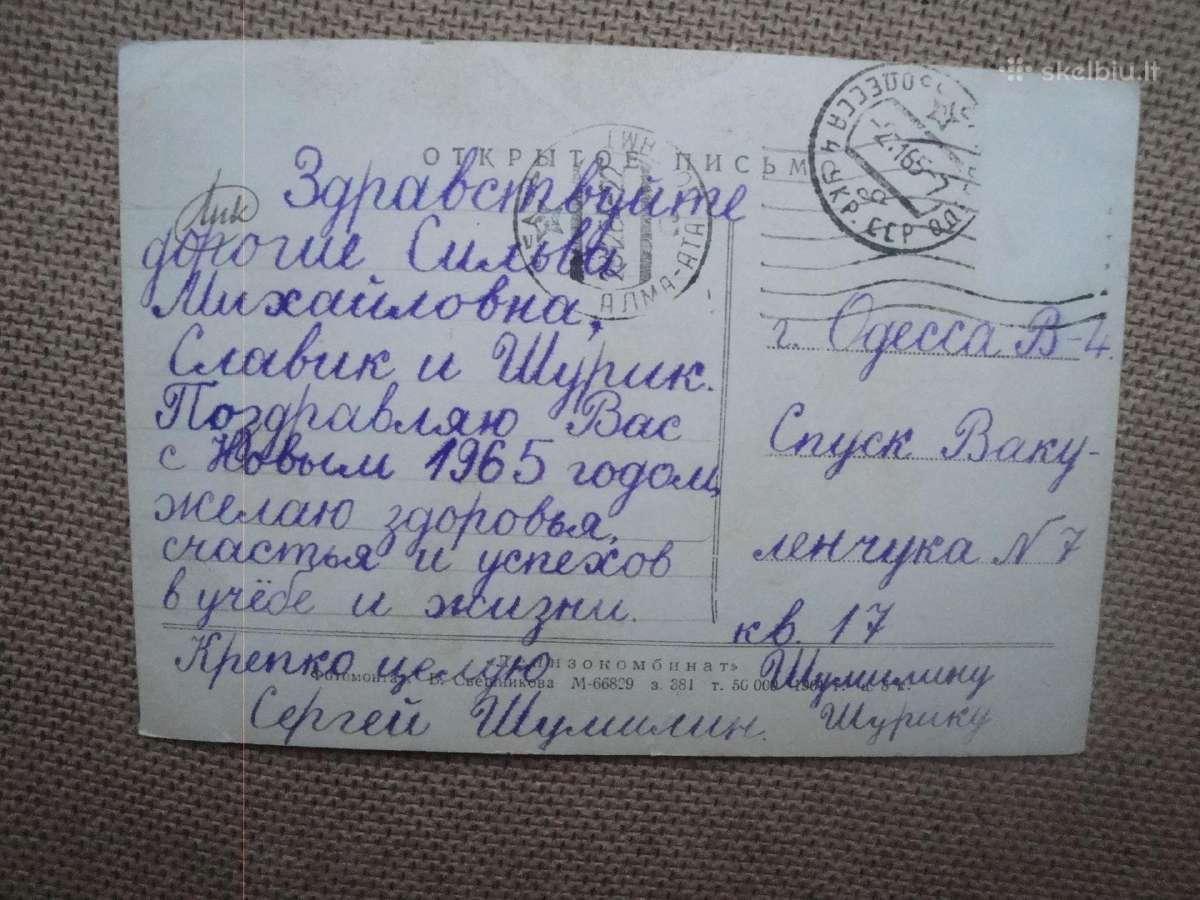 skelbiu.lt
ОТКРЫТОЕ ПИСЬМ
Здравствуйте
дорогие Сильва
Михайловна,
Славик и Шурик.
Поздравляю Вас
с Новым 1965 годом,
желаю здоровья,
счастья и успехов
в учёбе и жизни.
Крепко целую
Сергей Шумилин.
АЛМА-АТА
ОДЕССА 4 УКР. ССР
-2.165-7
г. Одесса В-4.
Спуск Ваку-
ленчука N 7
кв. 17
Шумилину
Шурику
М-66829 з. 381 т. 50 000